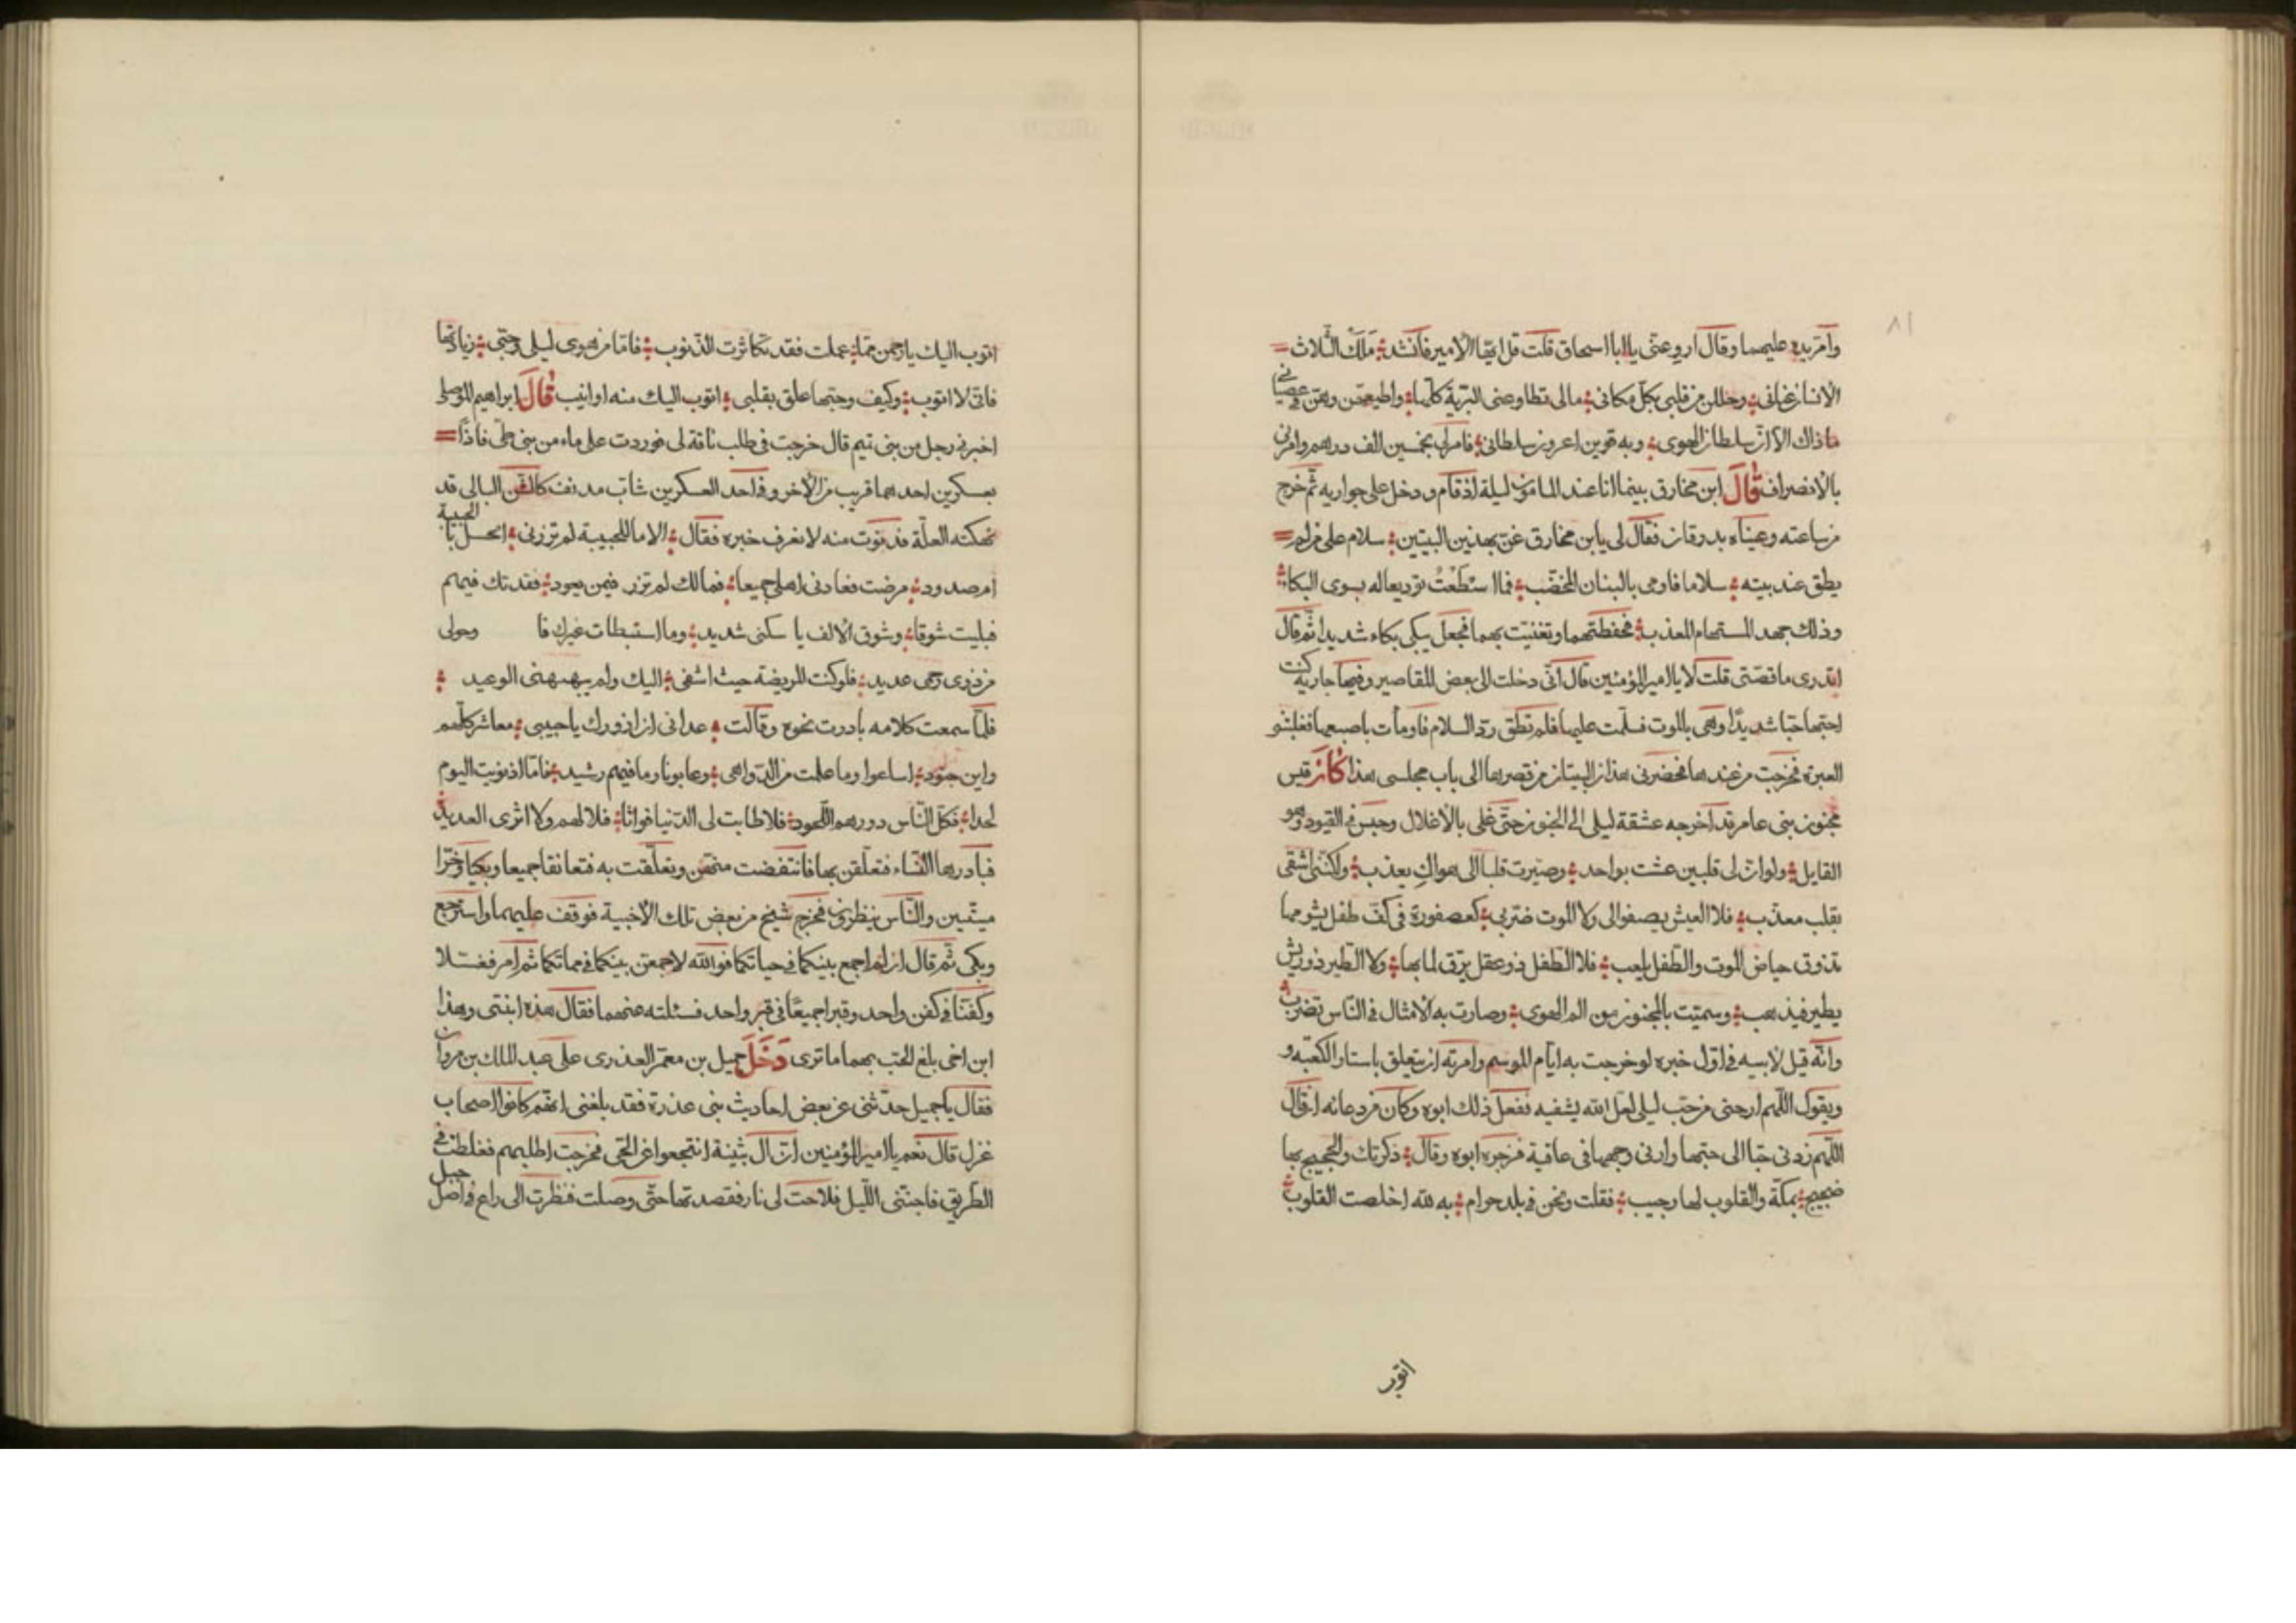 ٨١
وامر بيده عليهما وقال ارو عنى يا ابا اسحاق قلت قل ايها الامير فانشد ملك الثلاث
الانسات عنانى وحللن من قلبى بكل مكانى مالى تطاوعنى البرية كلها واطيعهن وهن فى عصيا
ما ذاك الا ان سلطان الهوى وبه قوين اعز من سلطانى فامر لى بخمسين الف درهم وامرنى
بالانصراف قال ابن مخارق بينما انا عند المامون ليلة اذ قام ودخل على جواريه ثم خرج
من ساعته وعيناه بدرقان فقال لى يا بن مخارق غن بهذين البيتين سلام على من لم
يطق عند بيته سلاما فاومى بالبنان المخضب فما اسطعت توديعا له بسوى البكا
وذلك جهد المستهام المعذب فحفظتهما وتغنيت بهما فجعل يبكى بكاء شديدا ثم قال
اتدرى ما قصتى قلت لا يا امير المؤمنين قال انى دخلت الى بعض المقاصير وفيها جارية كنت
احبها حبا شديدا وهى بالموت فسلمت عليها فلم تطق رد السلام فاومأت باصبعها فغلبتنى
العبرة فخرجت من عندها فحضرنى هذان البيتان من قصرها الى باب مجلسى هذا كان قيس
مجنون بنى عامر قد اخرجه عشقة ليلى الى الجنون حتى غلى بالاغلال وحبس فى القيود وهو
القايل ولو ان لى قلبين عشت بواحد وصيرت قلبا الى هواك يعذب ولكننى اشقى
بقلب معذب فلا العيش يصفو الى ولا الموت ضربى كعصفورة فى كف طفل يشومها
تذوق حياض الموت والطفل يلعب فلا الطفل ذو عقل يرق لما بها ولا الطير ذو ريش
يطير فيذهب وسميت بالمجنون من الم الهوى وصارت به الامثال فى الناس تضرب
وانه قيل لابيه فى اول خبره لو خرجت به ايام الموسم وامرته ان يتعلق باستار الكعبه و
ويقول اللهم ارحنى من حب ليلى لعل الله يشفيه ففعل ذلك ابوه وكان من دعائه ان قال
اللهم زدنى حبا الى حبها وارنى وجهها فى عاقبة فزجره ابوه وقال ذكرتك والحجيج بها
ضجيج بمكة والقلوب لها وجيب فقلت ونحن فى بلد حرام به لله اخلصت القلوب
اتوب
اتوب اليك يا رحمن مما عملت فقد تكاثرت الذنوب فاما من هوى ليلى وحبى زيارتها
فانى لا اتوب وكيف وحبها علق بقلبى اتوب اليك منه او انيب قال ابراهيم الموصلى
اخبرنى رجل من بنى تيم قال خرجت فى طلب ناقة لى فوردت على ماء من بنى طى فاذا
بعسكرين احدهما قريب من الاخر وفى احد العسكرين شاب مدنف كالشن البالى قد
نهكته العلة فدنوت منه لانعرف خبره فقال الا ما للحبيبة لم تزرنى ابخل بالحبيبة
ام صدود مرضت فعادنى اهلى جميعا فمالك لم تزر فيمن يعود فقدتك فيهم
فبليت شوقا وشوق الالف يا سكنى شديد وما استبطات غيرك فا وحولى
من ذوى رحمى عديد فلو كنت المريضة حيث اشفى اليك ولم ينهنهنى الوعيد
فلما سمعت كلامه بادرت نحوه وقالت عدانى ان ازورك يا حبيبى معاشر كلهم
واين جنود اساعوا وما علمت من الدواهى وعابونا وما فيهم رشيد فاما اذ نويت اليوم
لحدا فكل الناس دورهم اللحود فلا طابت لى الدنيا فواثا فلا لهم ولا اثرى العديد
فبادرها النساء فتعلقن بها فانتفضت منهن وتعلقت به فتعانقا جميعا وبكيا وخرا
ميتين والناس ينظرون فخرج شيخ من بعض تلك الاخبية فوقف عليهما واسترجع
وبكى ثم قال ان لم اجمع بينكما فى حياتكما فوالله لاجمعن بينكما فى مماتكما ثم امر فغسلا
وكفنا فى كفن واحد وقبرا جميعا فى قبر واحد فسئلته عنهما فقال هذه ابنتى وهذا
ابن اخى بلغ الحب بهما ما ترى دخل جميل بن معمر العذرى على عبد الملك بن مروان
فقال يا جميل حدثنى عن بعض احاديث بنى عذرة فقد بلغنى انهم كانوا اصحاب
غزل قال نعم يا امير المؤمنين ان ال بثينة انتجعوا عن الحى فخرجت اطلبهم فغلطت فى
الطريق فاجنى الليل فلاحت لى نار فقصدتها حتى وصلت فنظرت الى راع فى اصل جبل